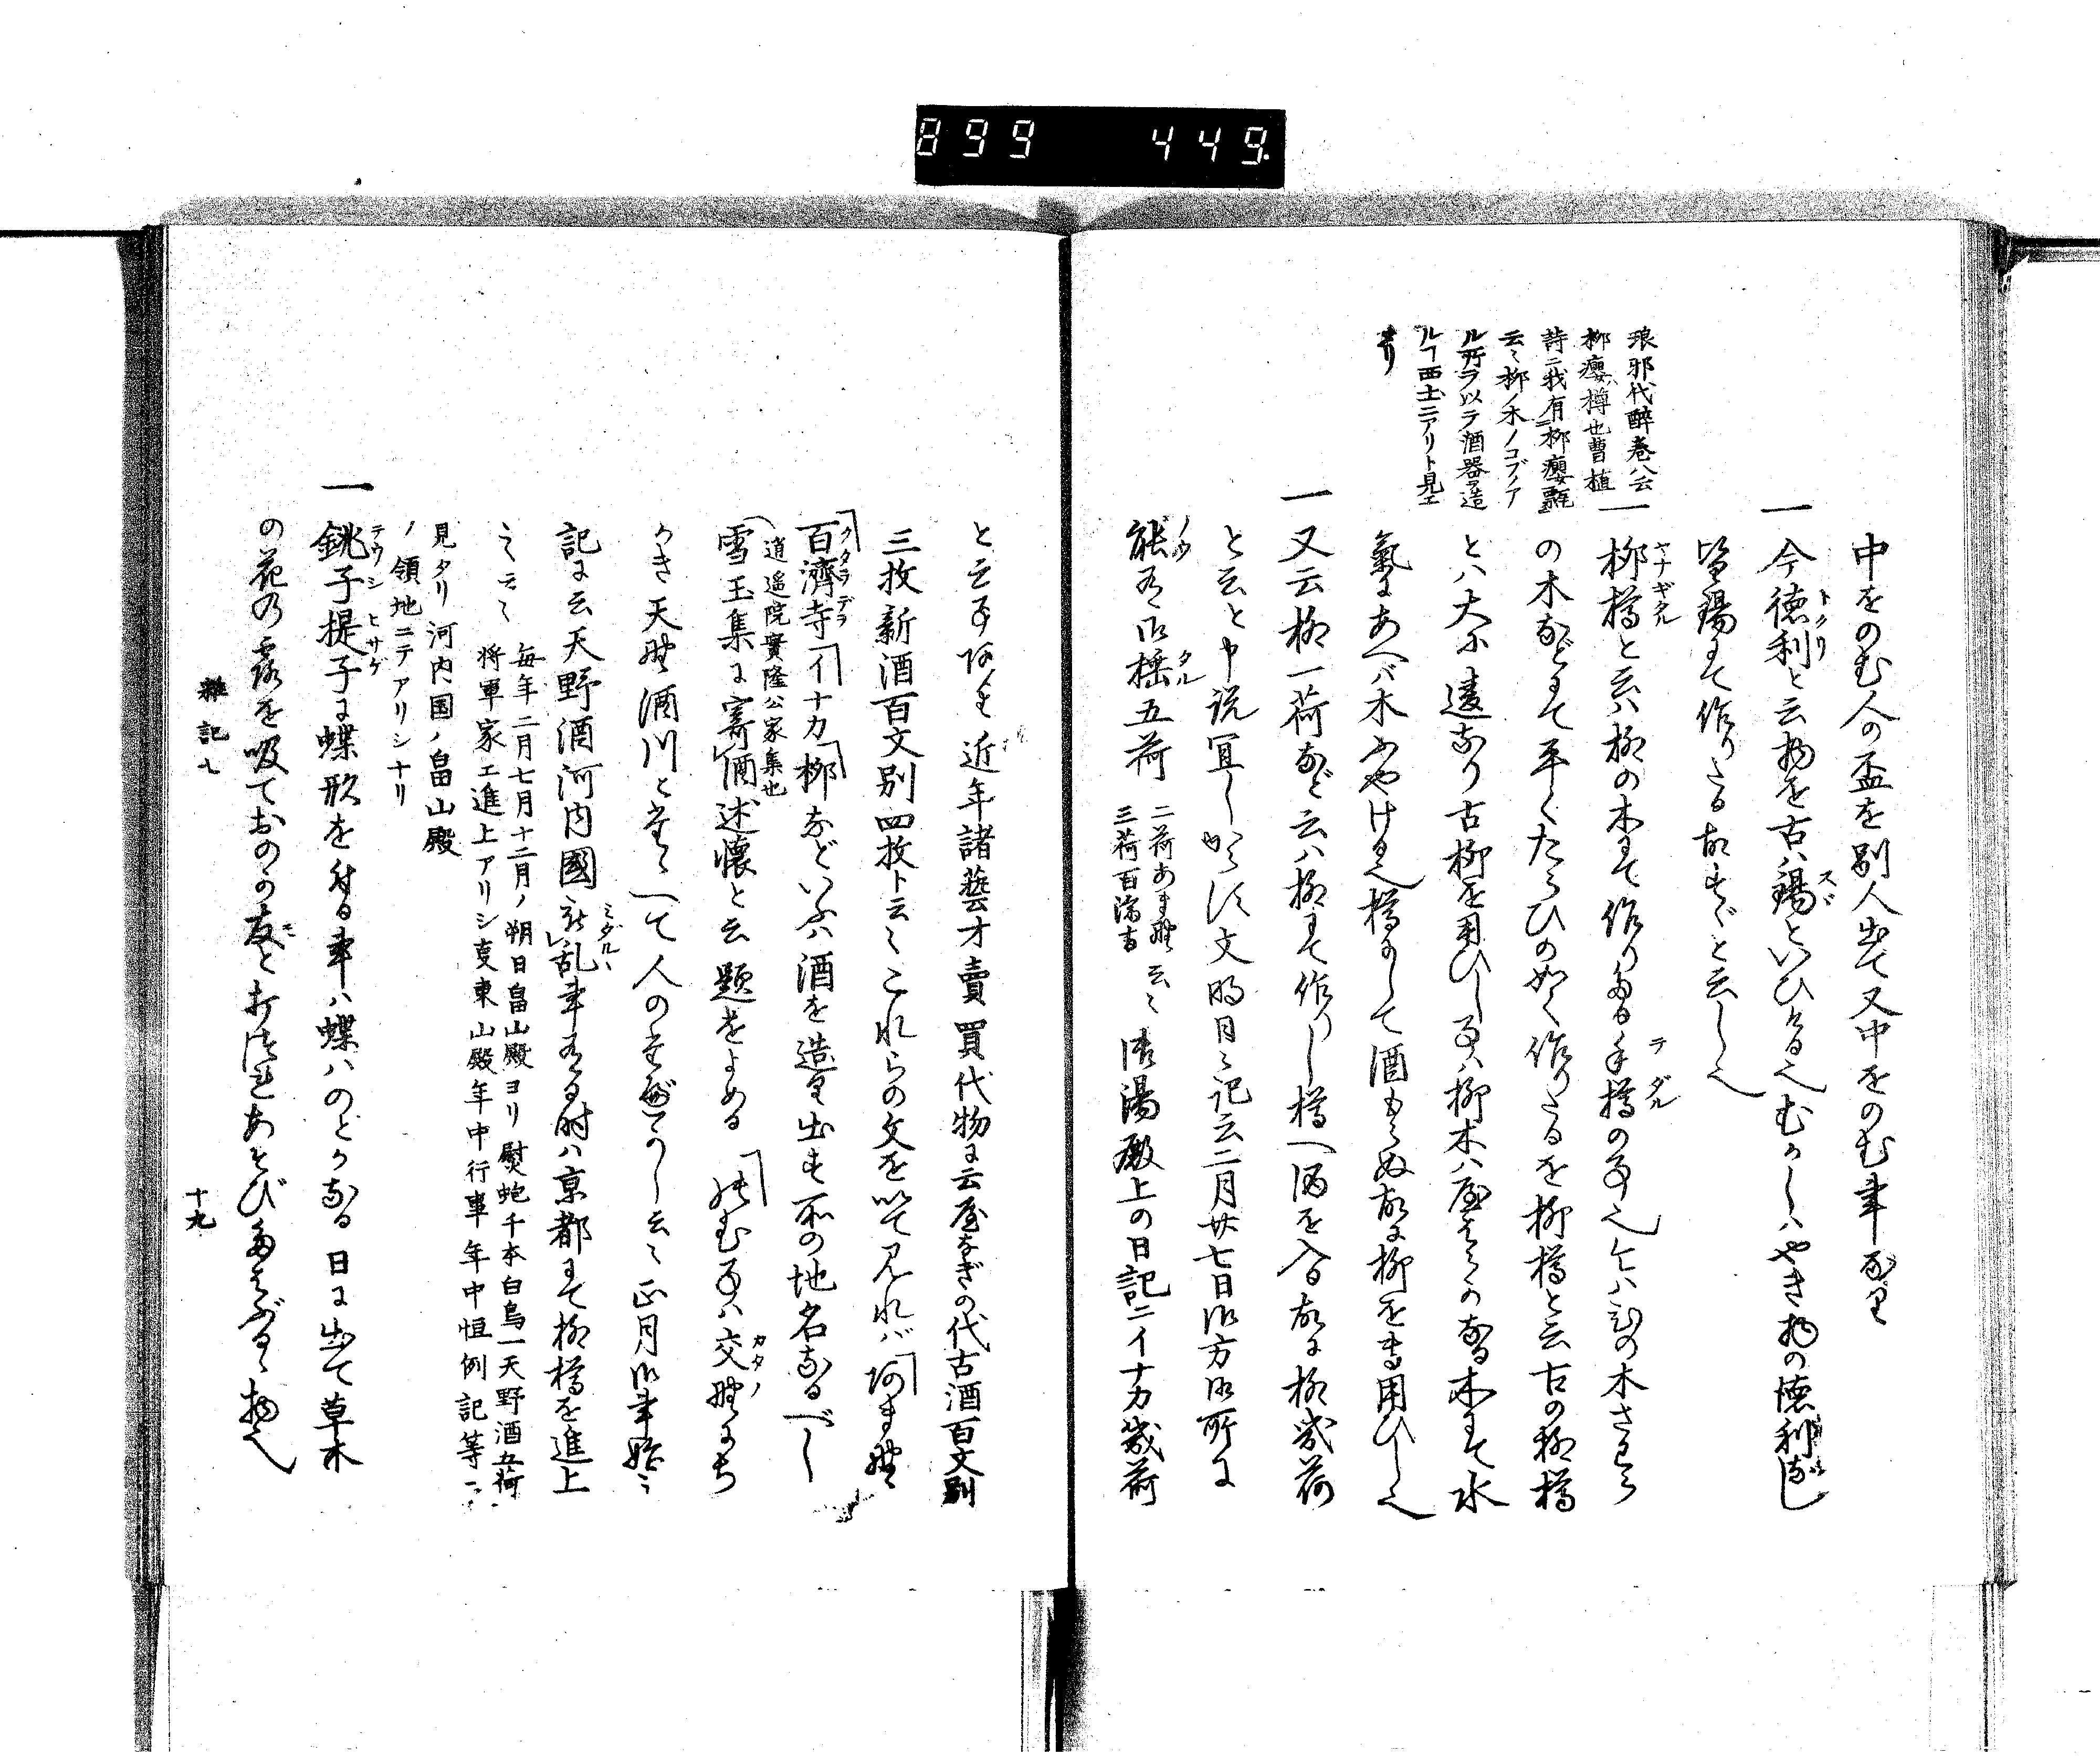 899 449.
琅邪代醉巻八云
柳癭樽也曹植
詩ニ我有柳癭瓢
云〻柳ノ木ノコブノア
ル所ヲ以ラ酒器ヲ造
ルヿ西土ニアリト見エ
タリ
中をのむ人の盃を別人出て又中をのむ事なり
一今徳利と云物を古ハ錫といひける也むかしハやき物の徳利なし
皆錫にて作りたる故すゞと云し也
一柳樽と云ハ柳の木にて作りたる手樽の事也今ハひの木さわら
の木などにて平くたらひの如く作りたるを柳樽と云古の柳樽
とハ大に違なり古柳を用ひし事ハ柳木ハ屋はらかなる木にて水
氣にあへバ木ふやける也樽にして酒もらぬ故に柳を専用ひし也
一又云柳一荷など云ハ柳にて作りし樽へ酒を入る故に柳幾荷
と云と申説宜しからす文明日〻記云二月廿七日御方御所に
能有御樽五荷 二荷あま野 三荷百済寺 云〻 御湯殿上の日記ニイナカ幾荷
と云事あり近年諸藝才賣買代物に云屋なぎの代古酒百文別
三枚新酒百文別四枚ト云〻これらの文を以て見れバあま野
百濟寺イナカ柳などいふハ酒を造り出す所の地名なるべし
雪玉集に寄酒述懐と云題をよめる のむ事ハ交野にち
逍遥院實隆公家集也
かき天野酒川と
へて人の
云〻正月御事始ミ
記に云天野酒河内國
乱事有る時ハ京都にて柳樽を進上
之云〻 毎年二月七月十二月ノ朔日畠山殿ヨリ熨蚫千本白鳥一天野酒五荷
将軍家エ進上アリシ夏東山殿年中行事年中恒例記等ニ
見タリ河内国ノ畠山殿
ノ領地ニテアリシナリ
一銚子提子に蝶形を付る事ハ蝶ハのとかなる日に出て草木
の花の露を吸ておのか友と打つれあそびたはふるゝ物也
雜記七
十九